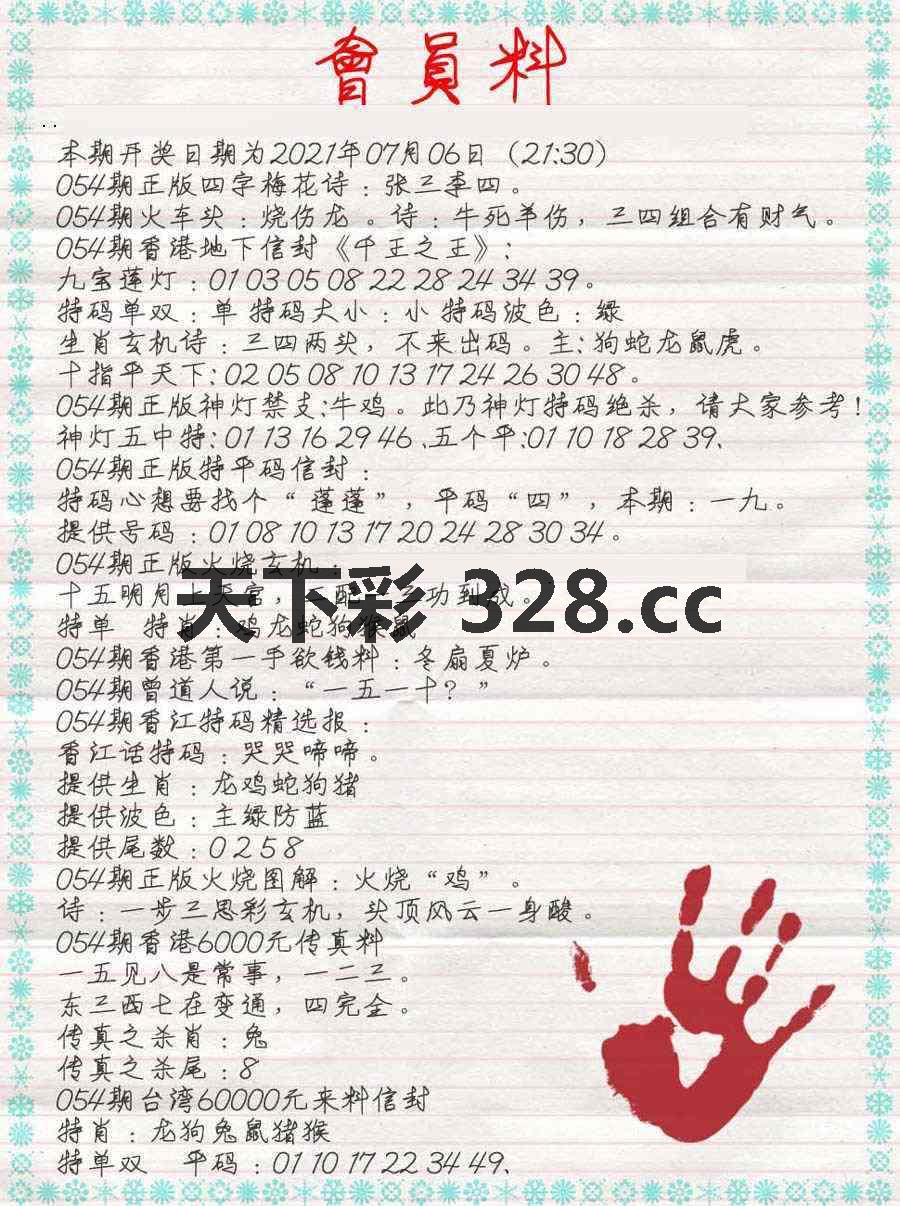 會員料
..
本期开奖日期为2021年07月06日（21:30）
054期正版四字梅花诗：张三李四。
054期火车头：烧伤龙 。诗：牛死羊伤，三四组合有财气。
054期香港地下信封《千王之王》：
九宝莲灯：01 03 05 08 22 28 24 34 39。
特码单双：单 特码大小：小 特码波色：绿
生肖玄机诗：三四两头，不来出码。主：狗蛇龙鼠虎。
十指平天下：02 05 08 10 13 17 24 26 30 48。
054期正版神灯禁支：牛鸡。此乃神灯特码绝杀，请大家参考！
神灯五中特：01 13 16 29 46、五个平：01 10 18 28 39、
054期正版特平码信封：
特码心想要找个“ 蓬蓬”，平码“四”，本期：一九。
提供号码：01 08 10 13 17 20 24 28 30 34。
054期正版火烧玄机：
十五明月上天宫，二配一三功到成。
天下彩 328.cc
特单 特肖：鸡龙蛇狗猴鼠
054期香港第一手欲钱料：冬扇夏炉。
054期曾道人说：“一五一十？”
054期香江特码精选报：
香江话特码：哭哭啼啼。
提供生肖：龙鸡蛇狗猪
提供波色：主绿防蓝
提供尾数：0 2 5 8
054期正版火烧图解：火烧“鸡”。
诗：一步三思彩玄机，头顶风云一身酸。
054期香港6000元传真料
一五见八是常事，一二三。
东三西七在变通，四完全。
传真之杀肖：兔
传真之杀尾：8
054期台湾60000元来料信封
特肖：龙狗兔鼠猪猴
特单双 平码：01 10 17 22 34 49、